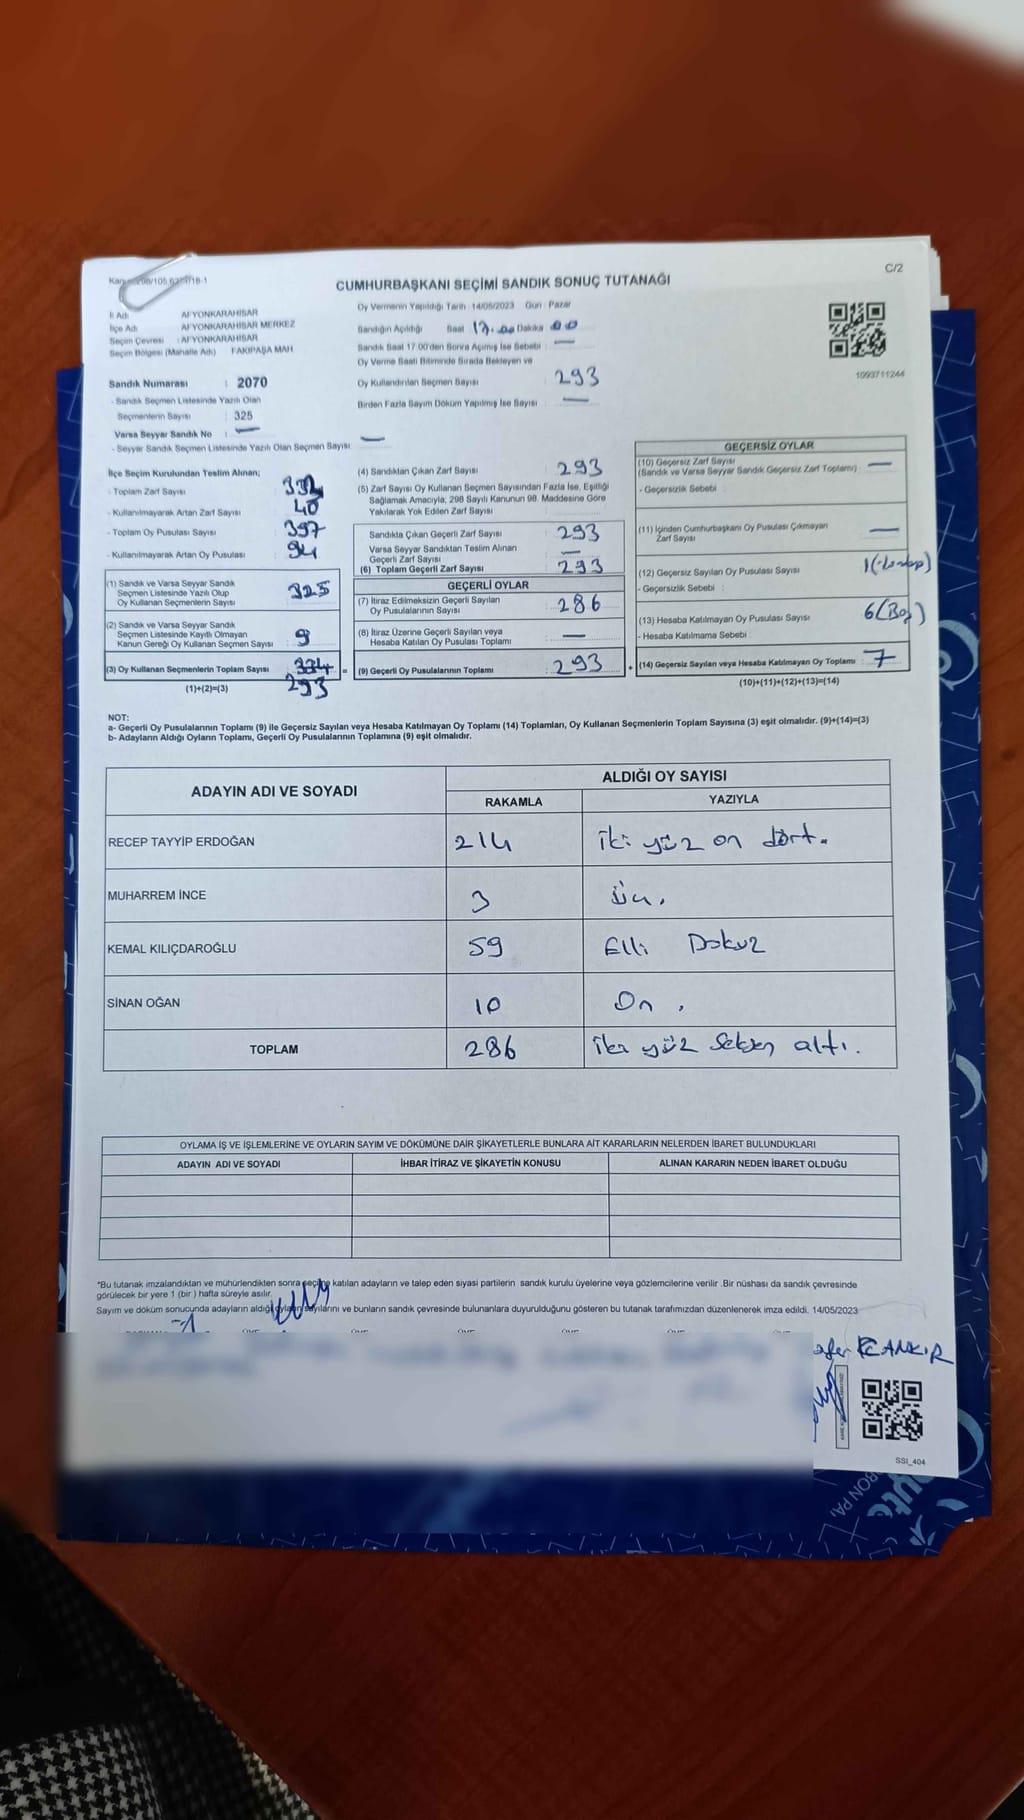 C/2
CUMHURBAŞKANI SEÇİMİ SANDIK SONUÇ TUTANAĞI
İl Adı AFYONKARAHİSAR
İlçe Adı AFYONKARAHİSAR MERKEZ
Seçim Çevresi : AFYONKARAHİSAR
Seçim Bölgesi (Mahalle Adı) FAKIPAŞA MAH
Sandık Numarası : 2070
- Sandık Seçmen Listesinde Yazılı Olan
Seçmenlerin Sayısı 325
Varsa Seyyar Sandık No : —
- Seyyar Sandık Seçmen Listesinde Yazılı Olan Seçmen Sayısı —
Oy Vermenin Yapıldığı Tarih : 14/05/2023 Gün : Pazar
Sandığın Açıldığı Saat 17.00 Dakika 00
Sandık Saat 17:00'den Sonra Açımış İse Sebebi : —
Oy Verme Saati Bitiminde Sırada Bekleyen ve
Oy Kullandırılan Seçmen Sayısı 293
Birden Fazla Sayım Döküm Yapılmış İse Sayısı : —
1093711244
İlçe Seçim Kurulundan Teslim Alınan;
- Toplam Zarf Sayısı
- Kullanılmayarak Artan Zarf Sayısı : 40
- Toplam Oy Pusulası Sayısı : 397
- Kullanılmayarak Artan Oy Pusulası : 94
(1) Sandık ve Varsa Seyyar Sandık
Seçmen Listesinde Yazılı Olup
Oy Kullanan Seçmenlerin Sayısı : 325
(2) Sandık ve Varsa Seyyar Sandık
Seçmen Listesinde Kayıtlı Olmayan
Kanun Gereği Oy Kullanan Seçmen Sayısı : 9
(3) Oy Kullanan Seçmenlerin Toplam Sayısı : 334 =
293
(1)+(2)=(3)
(4) Sandıktan Çıkan Zarf Sayısı : 293
(5) Zarf Sayısı Oy Kullanan Seçmen Sayısından Fazla İse, Eşitliği
Sağlamak Amacıyla, 298 Sayılı Kanunun 98. Maddesine Göre
Yakılarak Yok Edilen Zarf Sayısı :
Sandıkta Çıkan Geçerli Zarf Sayısı : 293
Varsa Seyyar Sandıktan Teslim Alınan
Geçerli Zarf Sayısı : —
(6) Toplam Geçerli Zarf Sayısı : 293
GEÇERLİ OYLAR
(7) İtiraz Edilmeksizin Geçerli Sayılan
Oy Pusulalarının Sayısı : 286
(8) İtiraz Üzerine Geçerli Sayılan veya
Hesaba Katılan Oy Pusulası Toplamı : —
(9) Geçerli Oy Pusulalarının Toplamı : 293 +
GEÇERSİZ OYLAR
(10) Geçersiz Zarf Sayısı
(Sandık ve Varsa Seyyar Sandık Geçersiz Zarf Toplamı) : —
- Geçersizlik Sebebi :
(11) İçinden Cumhurbaşkanı Oy Pusulası Çıkmayan
Zarf Sayısı : —
(12) Geçersiz Sayılan Oy Pusulası Sayısı : 1
- Geçersizlik Sebebi :
(13) Hesaba Katılmayan Oy Pusulası Sayısı : 6 (Boş)
- Hesaba Katılmama Sebebi
(14) Geçersiz Sayılan veya Hesaba Katılmayan Oy Toplamı : 7
(10)+(11)+(12)+(13)=(14)
NOT:
a- Geçerli Oy Pusulalarının Toplamı (9) ile Geçersiz Sayılan veya Hesaba Katılmayan Oy Toplamı (14) Toplamları, Oy Kullanan Seçmenlerin Toplam Sayısına (3) eşit olmalıdır. (9)+(14)=(3)
b- Adayların Aldığı Oyların Toplamı, Geçerli Oy Pusulalarının Toplamına (9) eşit olmalıdır.
ADAYIN ADI VE SOYADI ALDIĞI OY SAYISI
RAKAMLA YAZIYLA
RECEP TAYYİP ERDOĞAN 214 İki yüz on dört.
MUHARREM İNCE 3 Üç.
KEMAL KILIÇDAROĞLU 59 Elli Dokuz
SİNAN OĞAN 10 On .
TOPLAM 286 İki yüz seksen altı.
OYLAMA İŞ VE İŞLEMLERİNE VE OYLARIN SAYIM VE DÖKÜMÜNE DAİR ŞİKAYETLERLE BUNLARA AİT KARARLARIN NELERDEN İBARET BULUNDUKLARI
ADAYIN ADI VE SOYADI İHBAR İTİRAZ VE ŞİKAYETİN KONUSU ALINAN KARARIN NEDEN İBARET OLDUĞU
*Bu tutanak imzalandıktan ve mühürlendikten sonra seçime katılan adayların ve talep eden siyasi partilerin sandık kurulu üyelerine veya gözlemcilerine verilir .Bir nüshası da sandık çevresinde
görülecek bir yere 1 (bir ) hafta süreyle asılır.
Sayım ve döküm sonucunda adayların aldığı oyların sayılarını ve bunların sandık çevresinde bulunanlara duyurulduğunu gösteren bu tutanak tarafımızdan düzenlenerek imza edildi. 14/05/2023
SSI_404